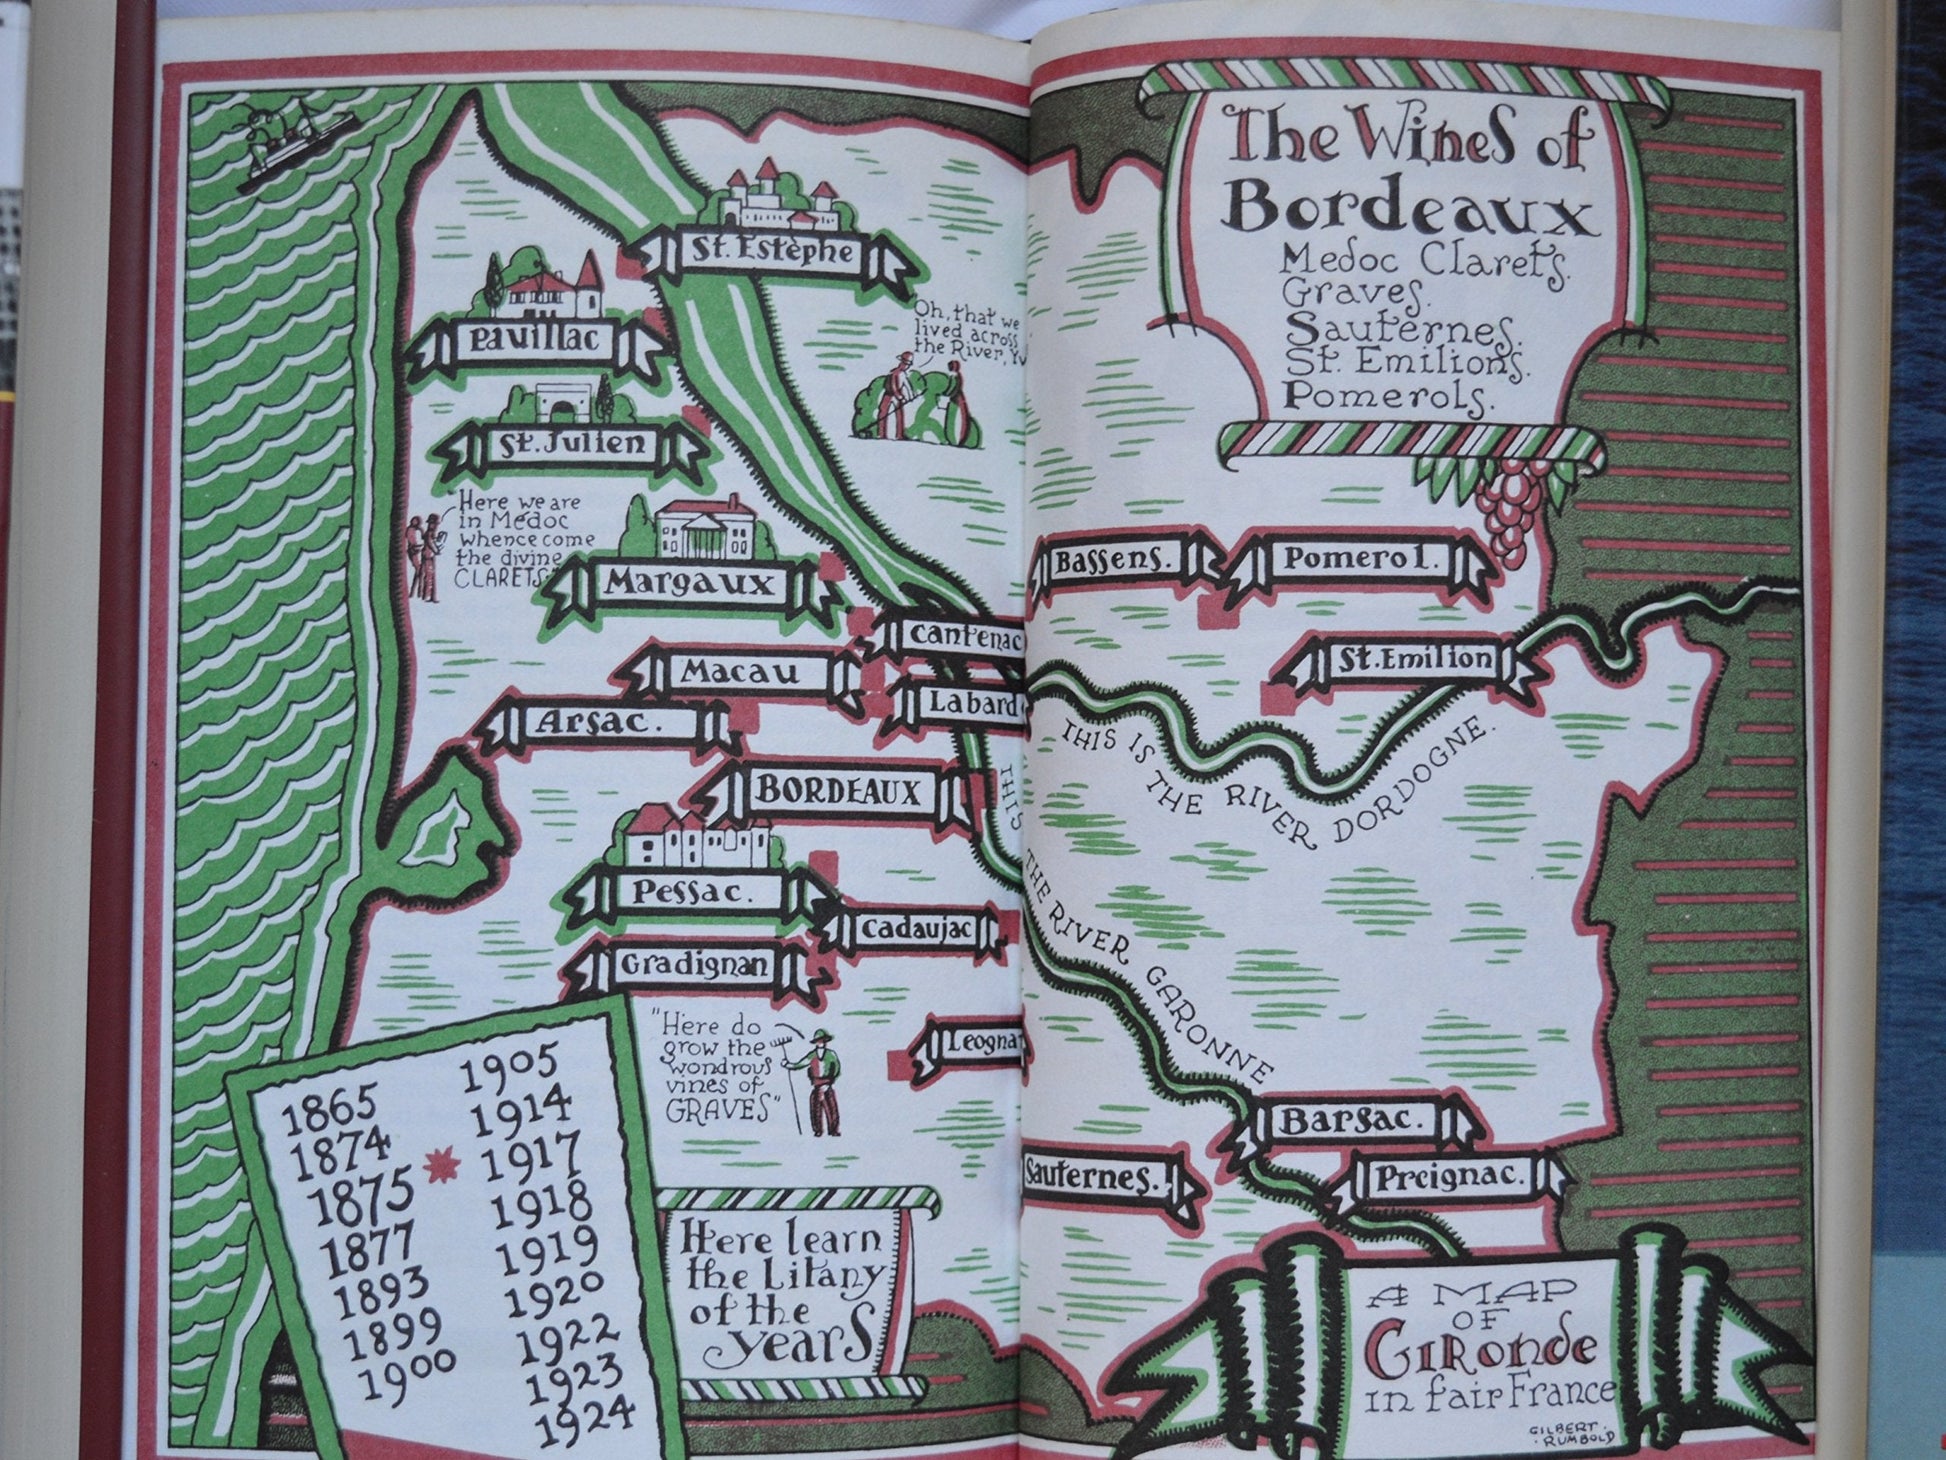 The Wines of
Bordeaux
Medoc Clarets.
Graves.
Sauternes.
St. Emilions.
Pomerols.
St. Estèphe
Pauillac
Oh, that we
lived across
the River,
St. Julien
"Here we are
in Médoc
whence come
the divine
CLARETS"
Margaux
Cantenac
Macau
Labard
Arsac.
BORDEAUX
Bassens.
Pomerol.
St. Emilion
THIS IS THE RIVER DORDOGNE.
THIS
THE RIVER GARONNE
Pessac.
Cadaujac
Gradignan
"Here do
grow the
wondrous
vines of
GRAVES"
Leogna
Barsac.
Sauternes.
Preignac.
1865
1874
1875
1877
1893
1899
1900
1905
1914
1917
1918
1919
1920
1922
1923
1924
Here learn
the Litany
of the
years
A MAP
OF
GIRONDE
in fair France
GILBERT.
.RUMBOLD